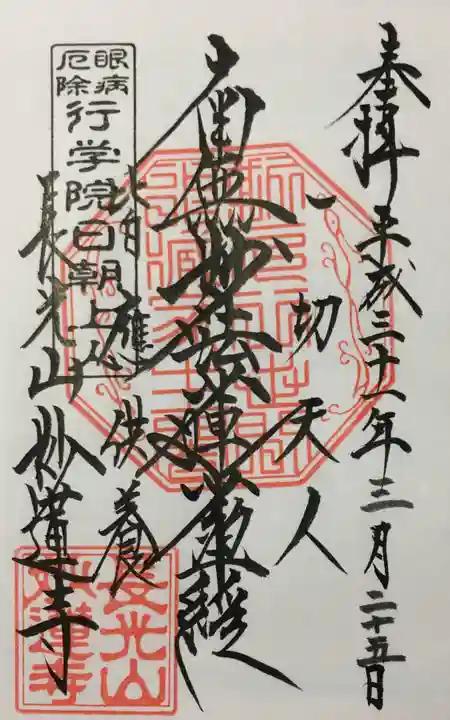 奉拝 平成三十一年三月二十五日
一切天人
南無妙法蓮華経
皆應供養
眼病
厄除
行学院日朝上人
長光山妙蓮寺
長光山
妙蓮寺